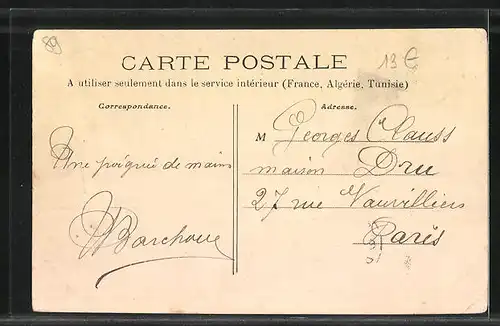 89
13 €
CARTE POSTALE
A utiliser seulement dans le service intérieur (France, Algérie, Tunisie)
Correspondance.
Adresse.
M Georges Clauss
maison Dru
27 rue Vauvilliers
Paris
Une poignée de mains